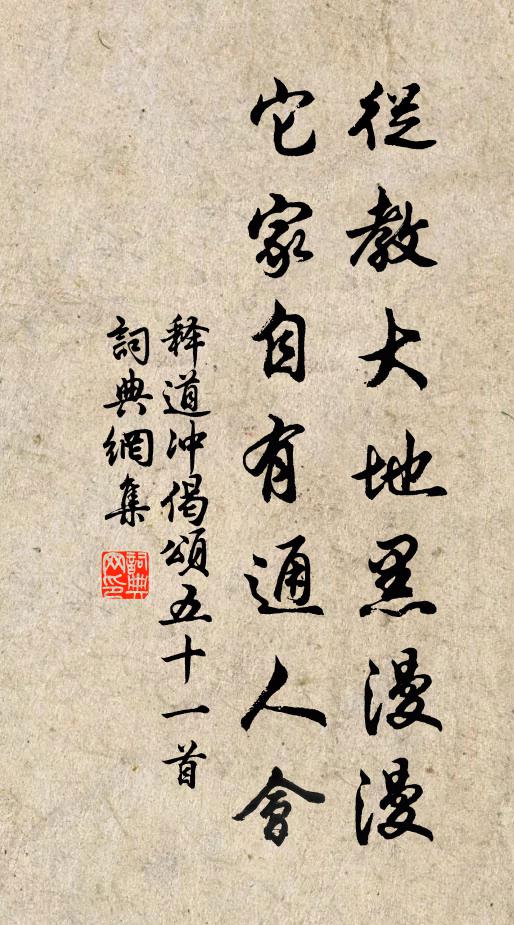 從教大地黑漫漫
它家自有通人會
释道冲偈頌五十一首
詞典網集
詞典網印